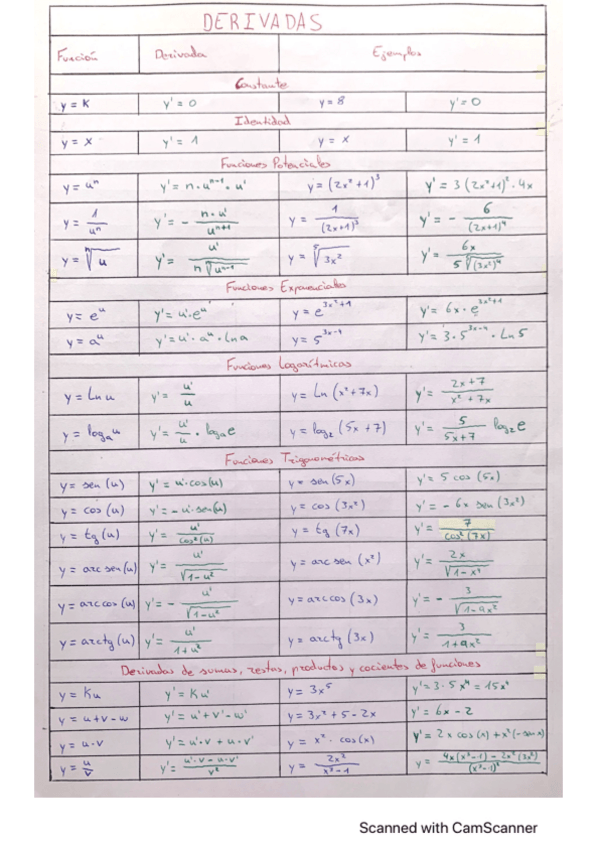 DERIVADAS
Función Derivada Ejemplos
Constante
y = K y' = 0 y = 8 y' = 0
Identidad
y = x y' = 1 y = x y' = 1
Funciones Potenciales
y = uⁿ y' = n · uⁿ⁻¹ · u' y = (2x²+1)³ y' = 3(2x²+1)² · 4x
y = 1/uⁿ y' = - n·u'/uⁿ⁺¹ y = 1/(2x+1)³ y' = - 6/(2x+1)⁴
y = ⁿ√u y' = u'/(n ⁿ√uⁿ⁻¹) y = ⁵√3x² y' = 6x/(5 ⁵√(3x²)⁴)
Funciones Exponenciales
y = eᵘ y' = u'·eᵘ y = e^(3x²+1) y' = 6x · e^(3x²+1)
y = aᵘ y' = u' · aᵘ · Ln a y = 5^(3x-4) y' = 3·5^(3x-4) · Ln 5
Funciones Logarítmicas
y = Ln u y' = u'/u y = Ln (x²+7x) y' = (2x+7)/(x²+7x)
y = logₐu y' = u'/u · logₐe y = log₂ (5x+7) y' = 5/(5x+7) log₂e
Funciones Trigonométricas
y = sen (u) y' = u'·cos(u) y = sen (5x) y' = 5 cos (5x)
y = cos (u) y' = -u'·sen(u) y = cos (3x²) y' = -6x sen (3x²)
y = tg (u) y' = u'/cos²(u) y = tg (7x) y' = 7/cos²(7x)
y = arc sen (u) y' = u'/√(1-u²) y = arc sen (x²) y' = 2x/√(1-x⁴)
y = arc cos (u) y' = - u'/√(1-u²) y = arc cos (3x) y' = - 3/√(1-9x²)
y = arc tg (u) y' = u'/(1+u²) y = arc tg (3x) y' = 3/(1+9x²)
Derivadas de sumas, restas, productos y cocientes de funciones
y = Ku y' = Ku' y = 3x⁵ y' = 3·5x⁴ = 15x⁴
y = u+v-w y' = u'+v'-w' y = 3x²+5-2x y' = 6x-2
y = u·v y' = u'·v + u·v' y = x² · cos(x) y' = 2x cos(x) + x²(-sen x)
y = u/v y' = (u'·v - u·v')/v² y = 2x²/(x³-1) y = (4x(x³-1) - 2x²(3x²))/(x³-1)²
Scanned with CamScanner